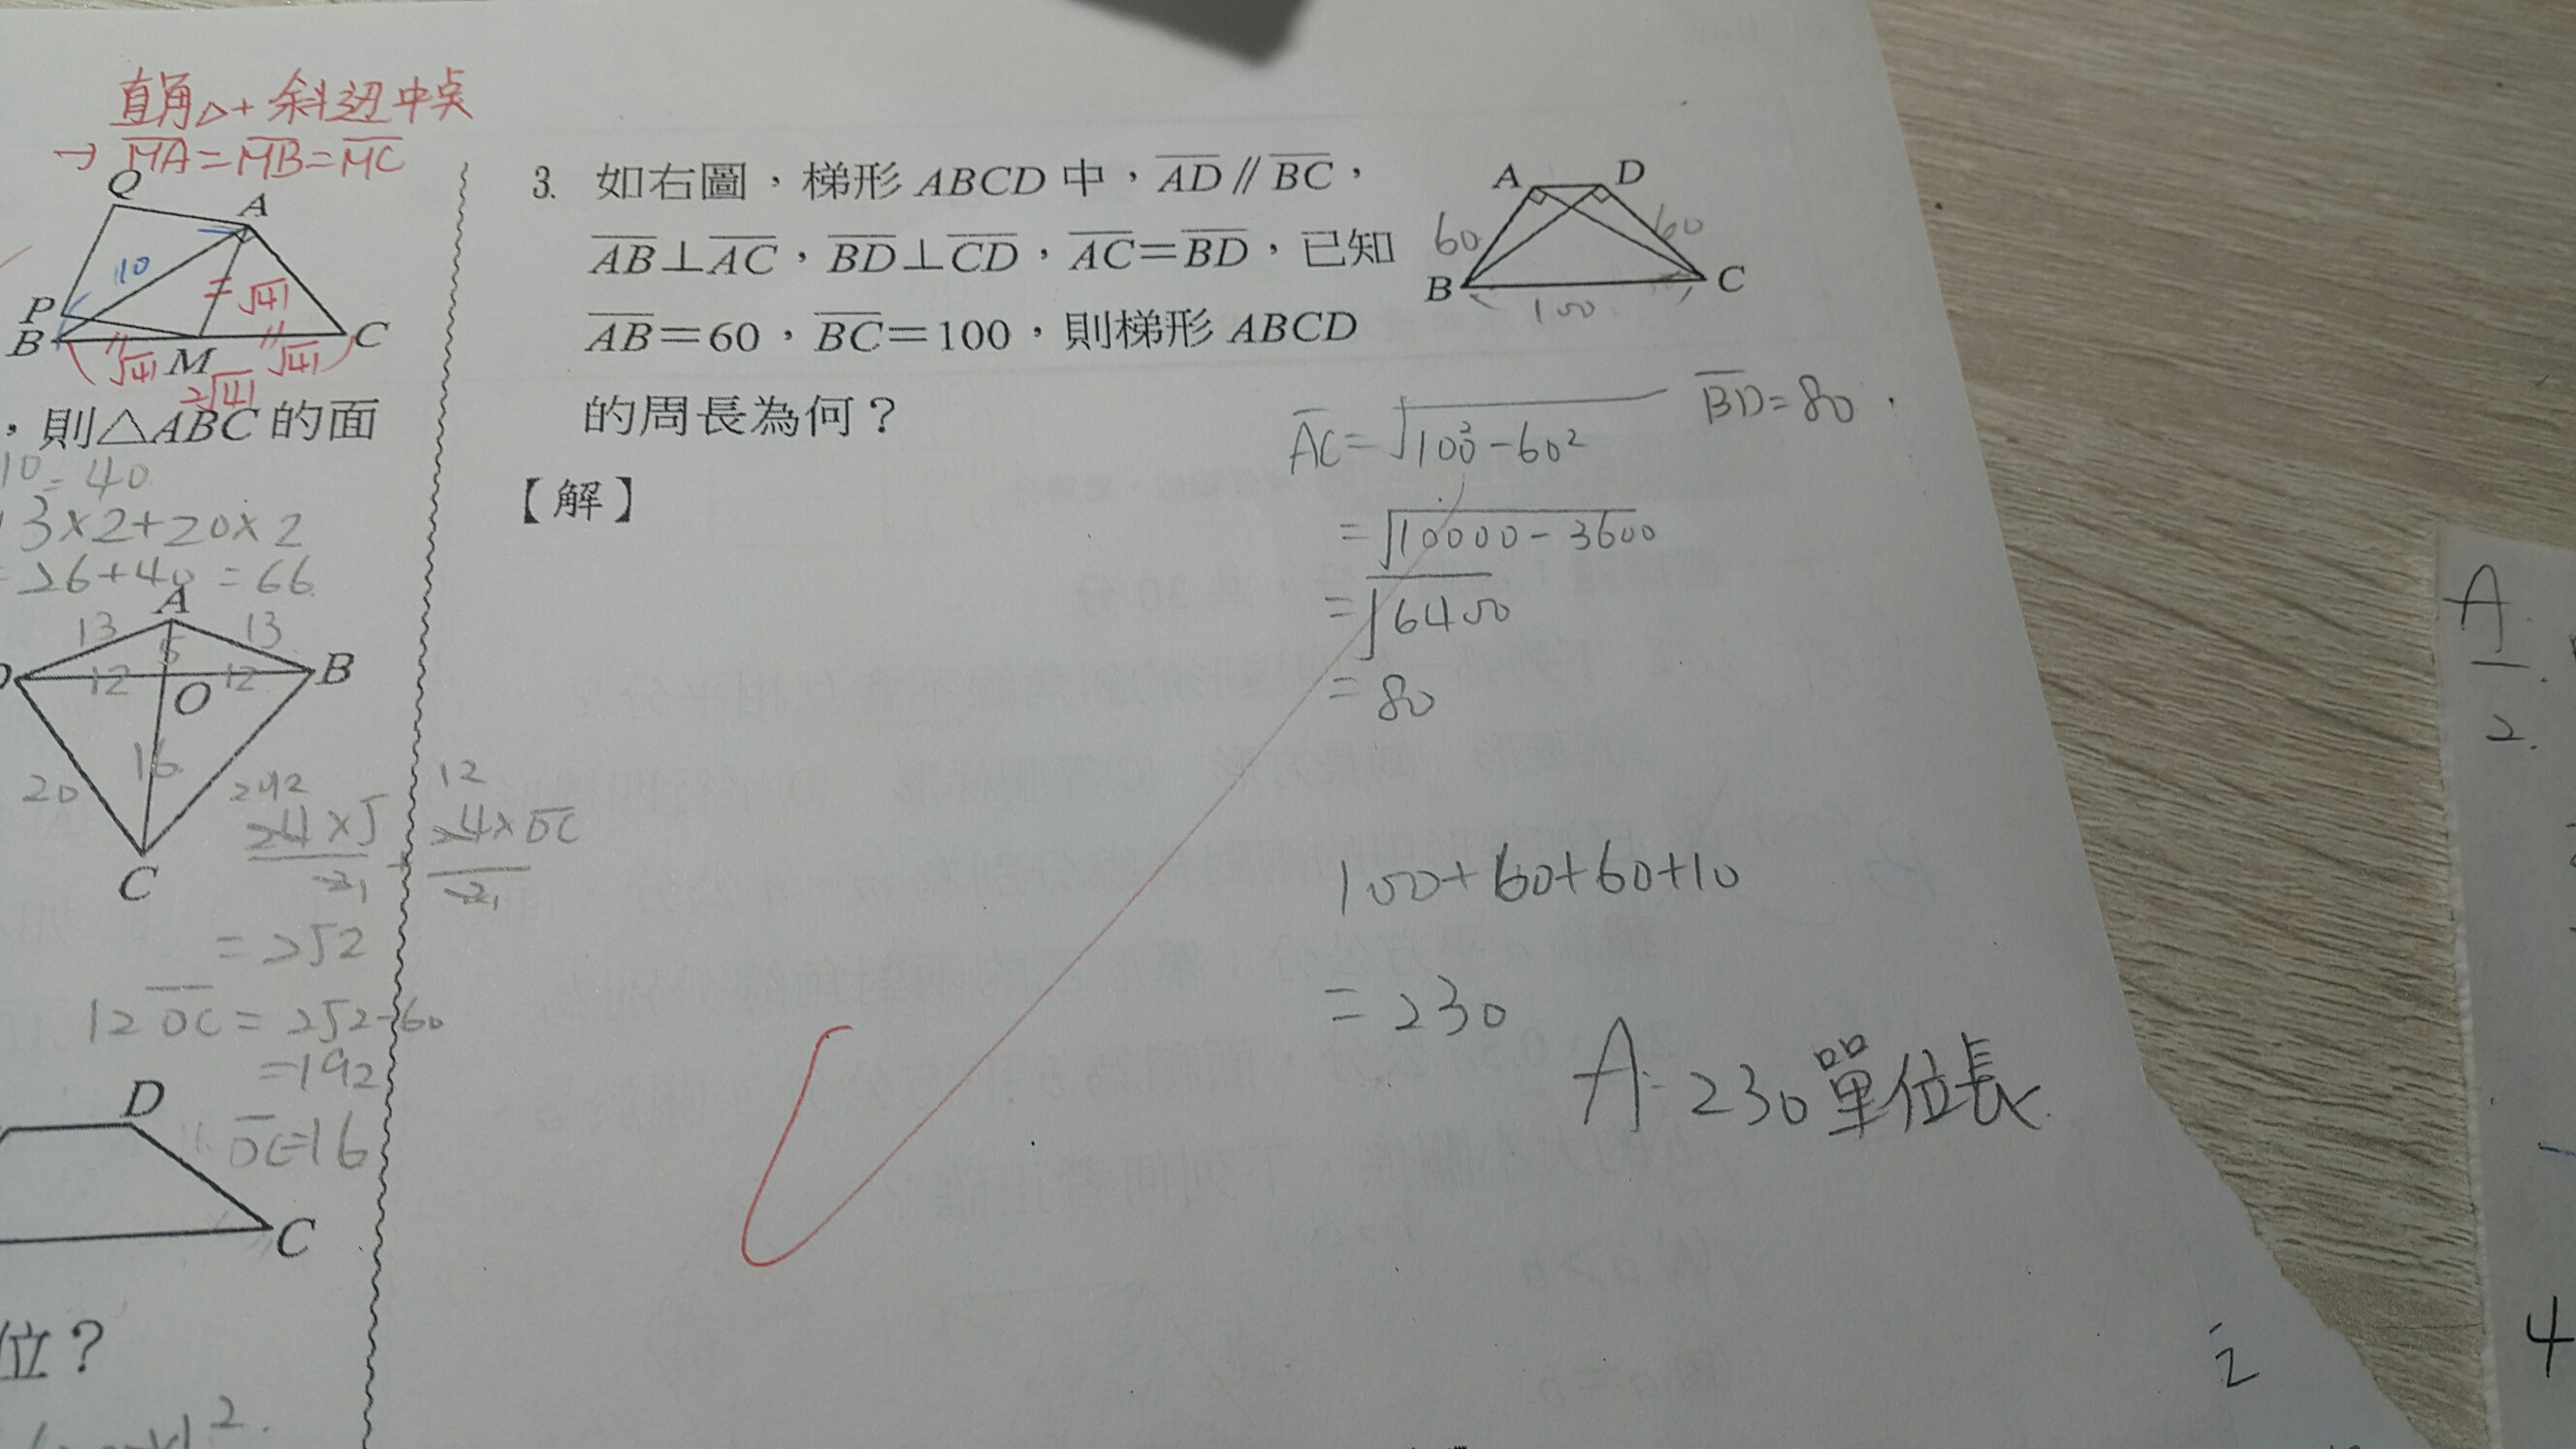 直角△+斜边中点
→ MA=MB=MC
Q
A
10
√41
P
B
C
√41
M
√41
2√41
，則△ABC的面
10=40
13×2+20×2
=26+40=66
A
13
13
5
12
12
B
O
16
20
C
24×5/2+24×OC/2
12
=252
12OC=252-60
=192
OC=16
D
C
位？
2
3. 如右圖，梯形ABCD中，AD∥BC，
AB⊥AC，BD⊥CD，AC=BD，已知
AB=60，BC=100，則梯形ABCD
的周長為何？
【解】
A
D
60
60
B
C
100
AC=√100²-60²
BD=80
=√10000-3600
=√6400
=80
100+60+60+10
=230
A: 230單位長
A
2.
2
4